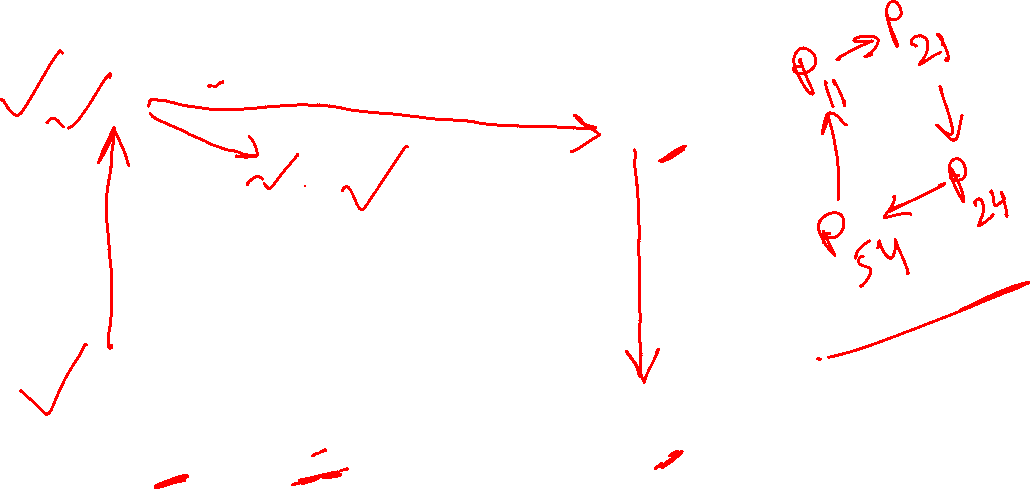 P11 → P21
P54 ← P24